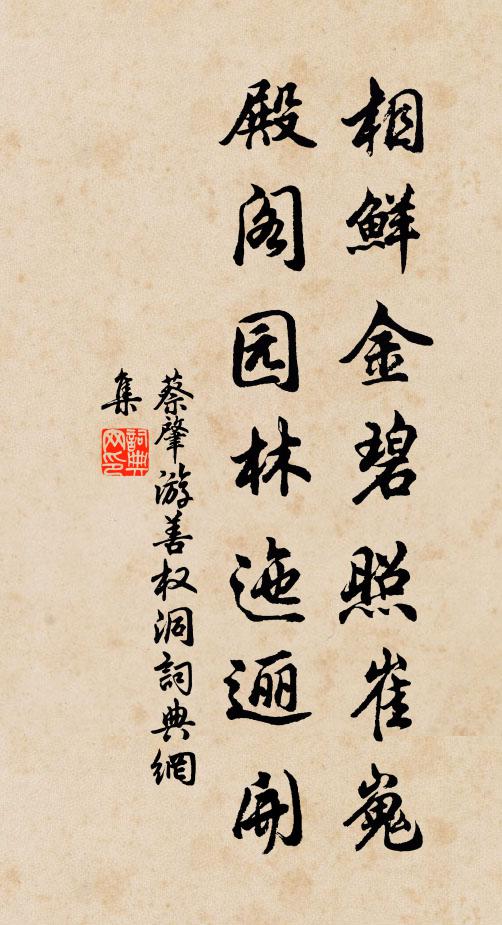 相鲜金碧照崔嵬
殿阁园林迤逦开
蔡肇游善权洞詞典網
集
詞典网印